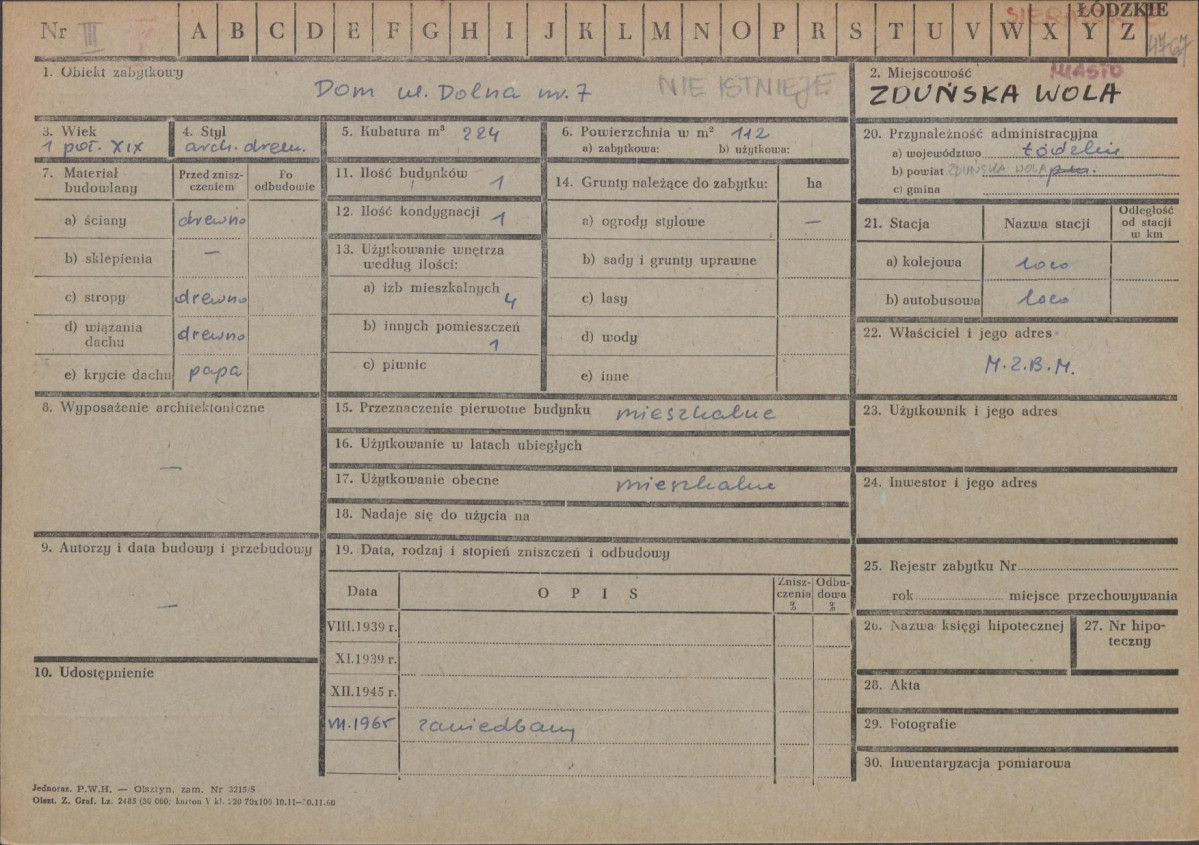 Nr III A B C D E F G H I J K L M N O P R S T U V W X Y Z
ŁÓDZKIE
MIASTO
1. Obiekt zabytkowy
Dom ul. Dolna nr. 7 NIE ISTNIEJE
2. Miejscowość
ZDUŃSKA WOLA
3. Wiek
1 poł. XIX
4. Styl
arch. drewn.
5. Kubatura m³ 224
6. Powierzchnia w m² 112
a) zabytkowa: b) użytkowa:
20. Przynależność administracyjna
a) województwo Łódzkie
b) powiat ZDUŃSKA WOLA
c) gmina
7. Materiał budowlany
Przed znisz-
czeniem
Po
odbudowie
a) ściany drewno
b) sklepienia —
c) stropy drewno
d) wiązania
dachu drewno
e) krycie dachu papa
11. Ilość budynków 1
12. Ilość kondygnacji 1
13. Użytkowanie wnętrza
według ilości:
a) izb mieszkalnych 4
b) innych pomieszczeń
1
c) piwnic
14. Grunty należące do zabytku: ha
a) ogrody stylowe —
b) sady i grunty uprawne
c) lasy
d) wody
e) inne
21. Stacja Nazwa stacji
Odległość
od stacji
w km
a) kolejowa loco
b) autobusowa loco
22. Właściciel i jego adres
M.Z.B.M.
8. Wyposażenie architektoniczne
—
15. Przeznaczenie pierwotne budynku mieszkalne
16. Użytkowanie w latach ubiegłych
17. Użytkowanie obecne mieszkalne
18. Nadaje się do użycia na
23. Użytkownik i jego adres
24. Inwestor i jego adres
9. Autorzy i data budowy i przebudowy
—
10. Udostępnienie
19. Data, rodzaj i stopień zniszczeń i odbudowy
Data OPIS
Znisz-
czenia
%
Odbu-
dowa
%
VIII.1939 r.
XI.1939 r.
XII.1945 r.
VII.1965 zaniedbany
25. Rejestr zabytku Nr
rok miejsce przechowywania
26. Nazwa księgi hipotecznej
27. Nr hipo-
teczny
28. Akta
29. Fotografie
30. Inwentaryzacja pomiarowa
Jednoraz. P.W.H. — Olsztyn, zam. Nr 3215/S
Olszt. Z. Graf. Lz. 2488 (30 000)